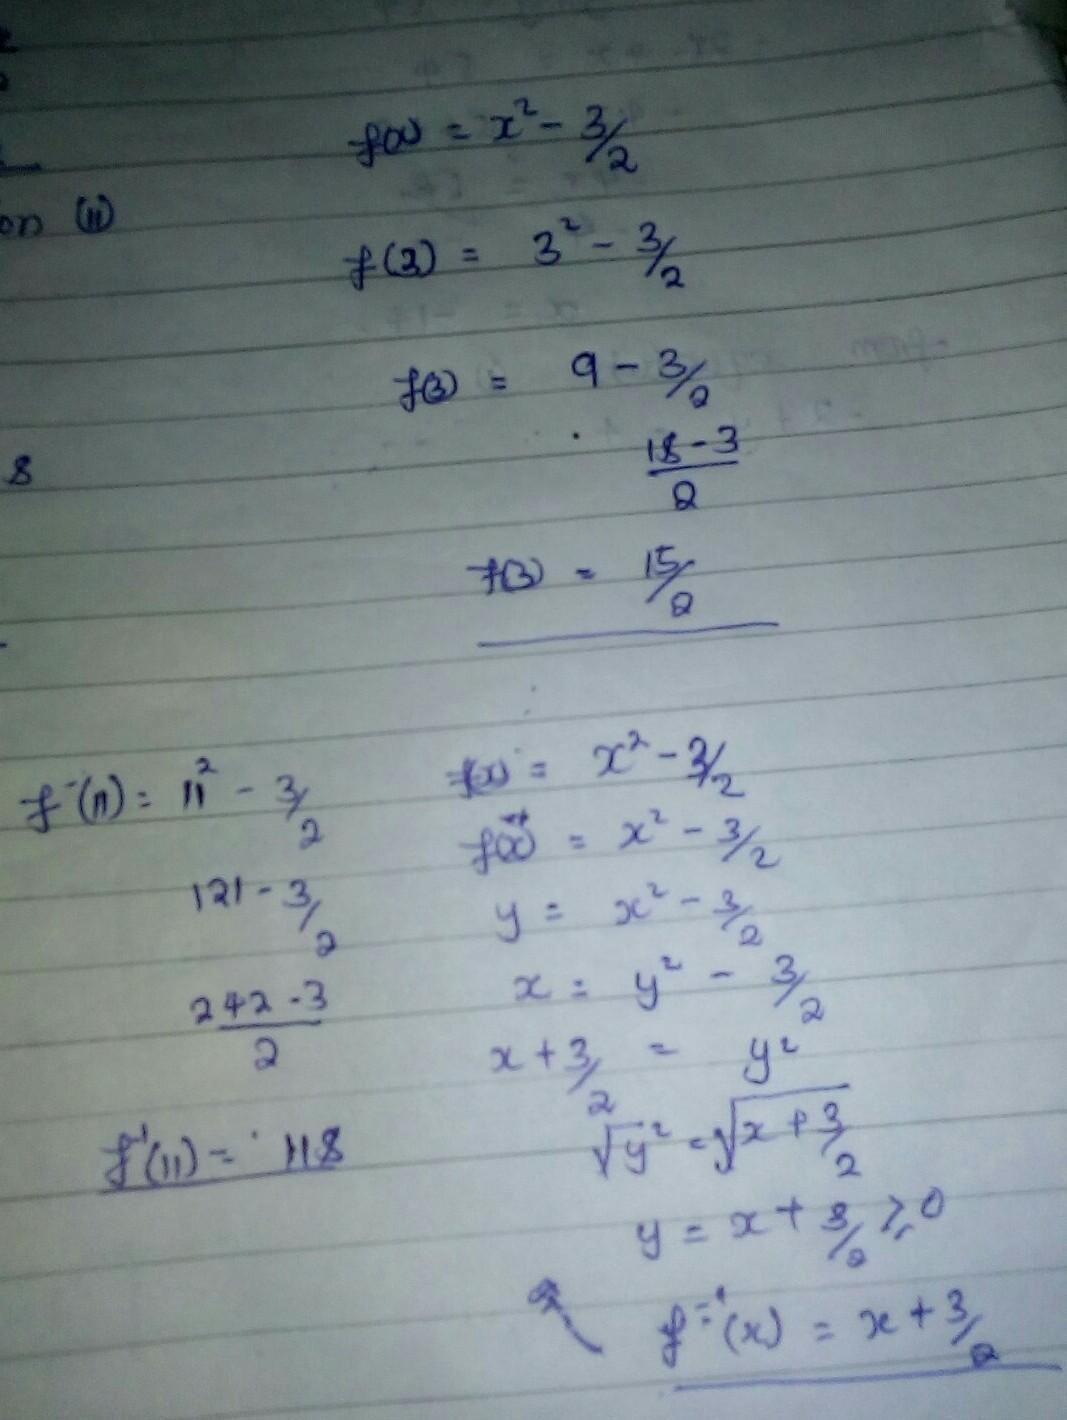 f(x) = x² - 3/2
on (11)
f(3) = 3² - 3/2
f(3) = 9 - 3/2
8
18 - 3
2
f(3) = 15/2
f⁻(11) = 11² - 3/2
121 - 3/2
242 - 3
2
f⁻¹(11) = 118
f(x) = x² - 3/2
f(x) = x² - 3/2
y = x² - 3/2
x = y² - 3/2
x + 3/2 = y²
√y² = √x + 3/2
y = x + 3/2 ≥ 0
f⁻¹(x) = x + 3/2